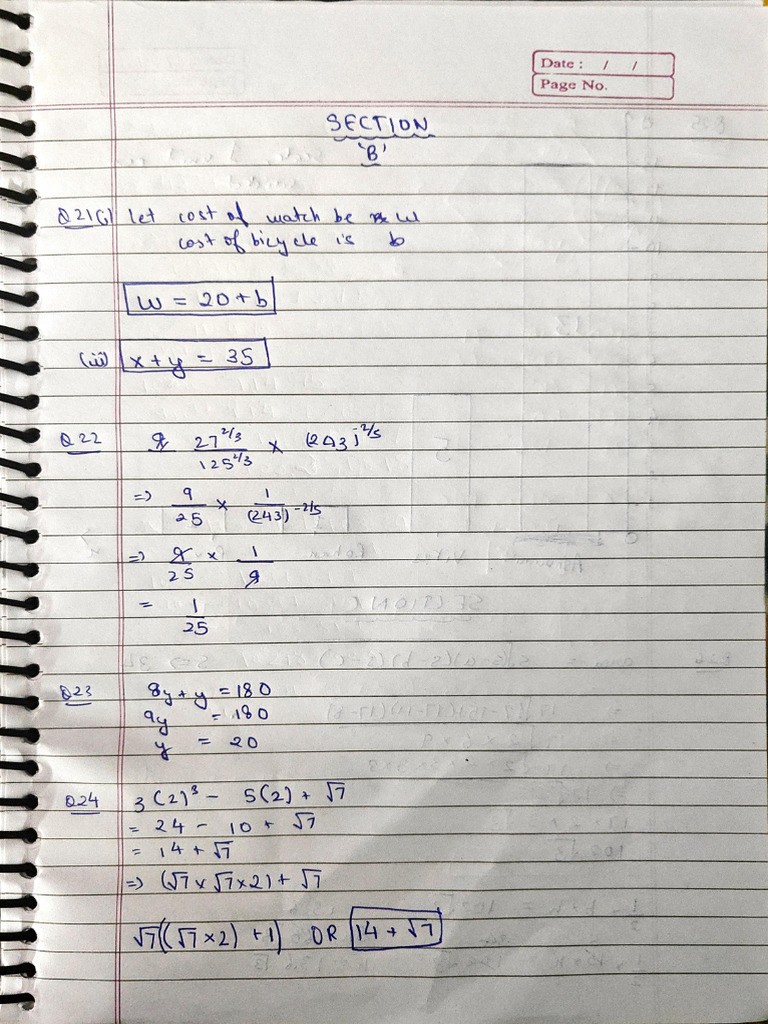 Date : / /
Page No.
SECTION
'B'
Q21(i) let cost of watch be w
cost of bicycle is b
w = 20 + b
(ii) x + y = 35
Q22 27^2/3 / 125^2/3 × (243)^-2/5
=> 9/25 × 1/(243)^-2/5
=> 9/25 × 1/9
= 1/25
Q23 8y + y = 180
9y = 180
y = 20
Q24 3(2)³ - 5(2) + √7
= 24 - 10 + √7
= 14 + √7
=> (√7 × √7 × 2) + √7
√7((√7 × 2) + 1) OR 14 + √7